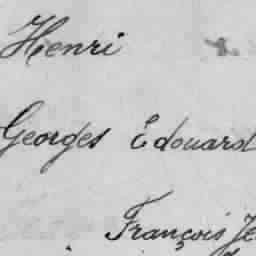 Henri
Georges Edouard
François Je